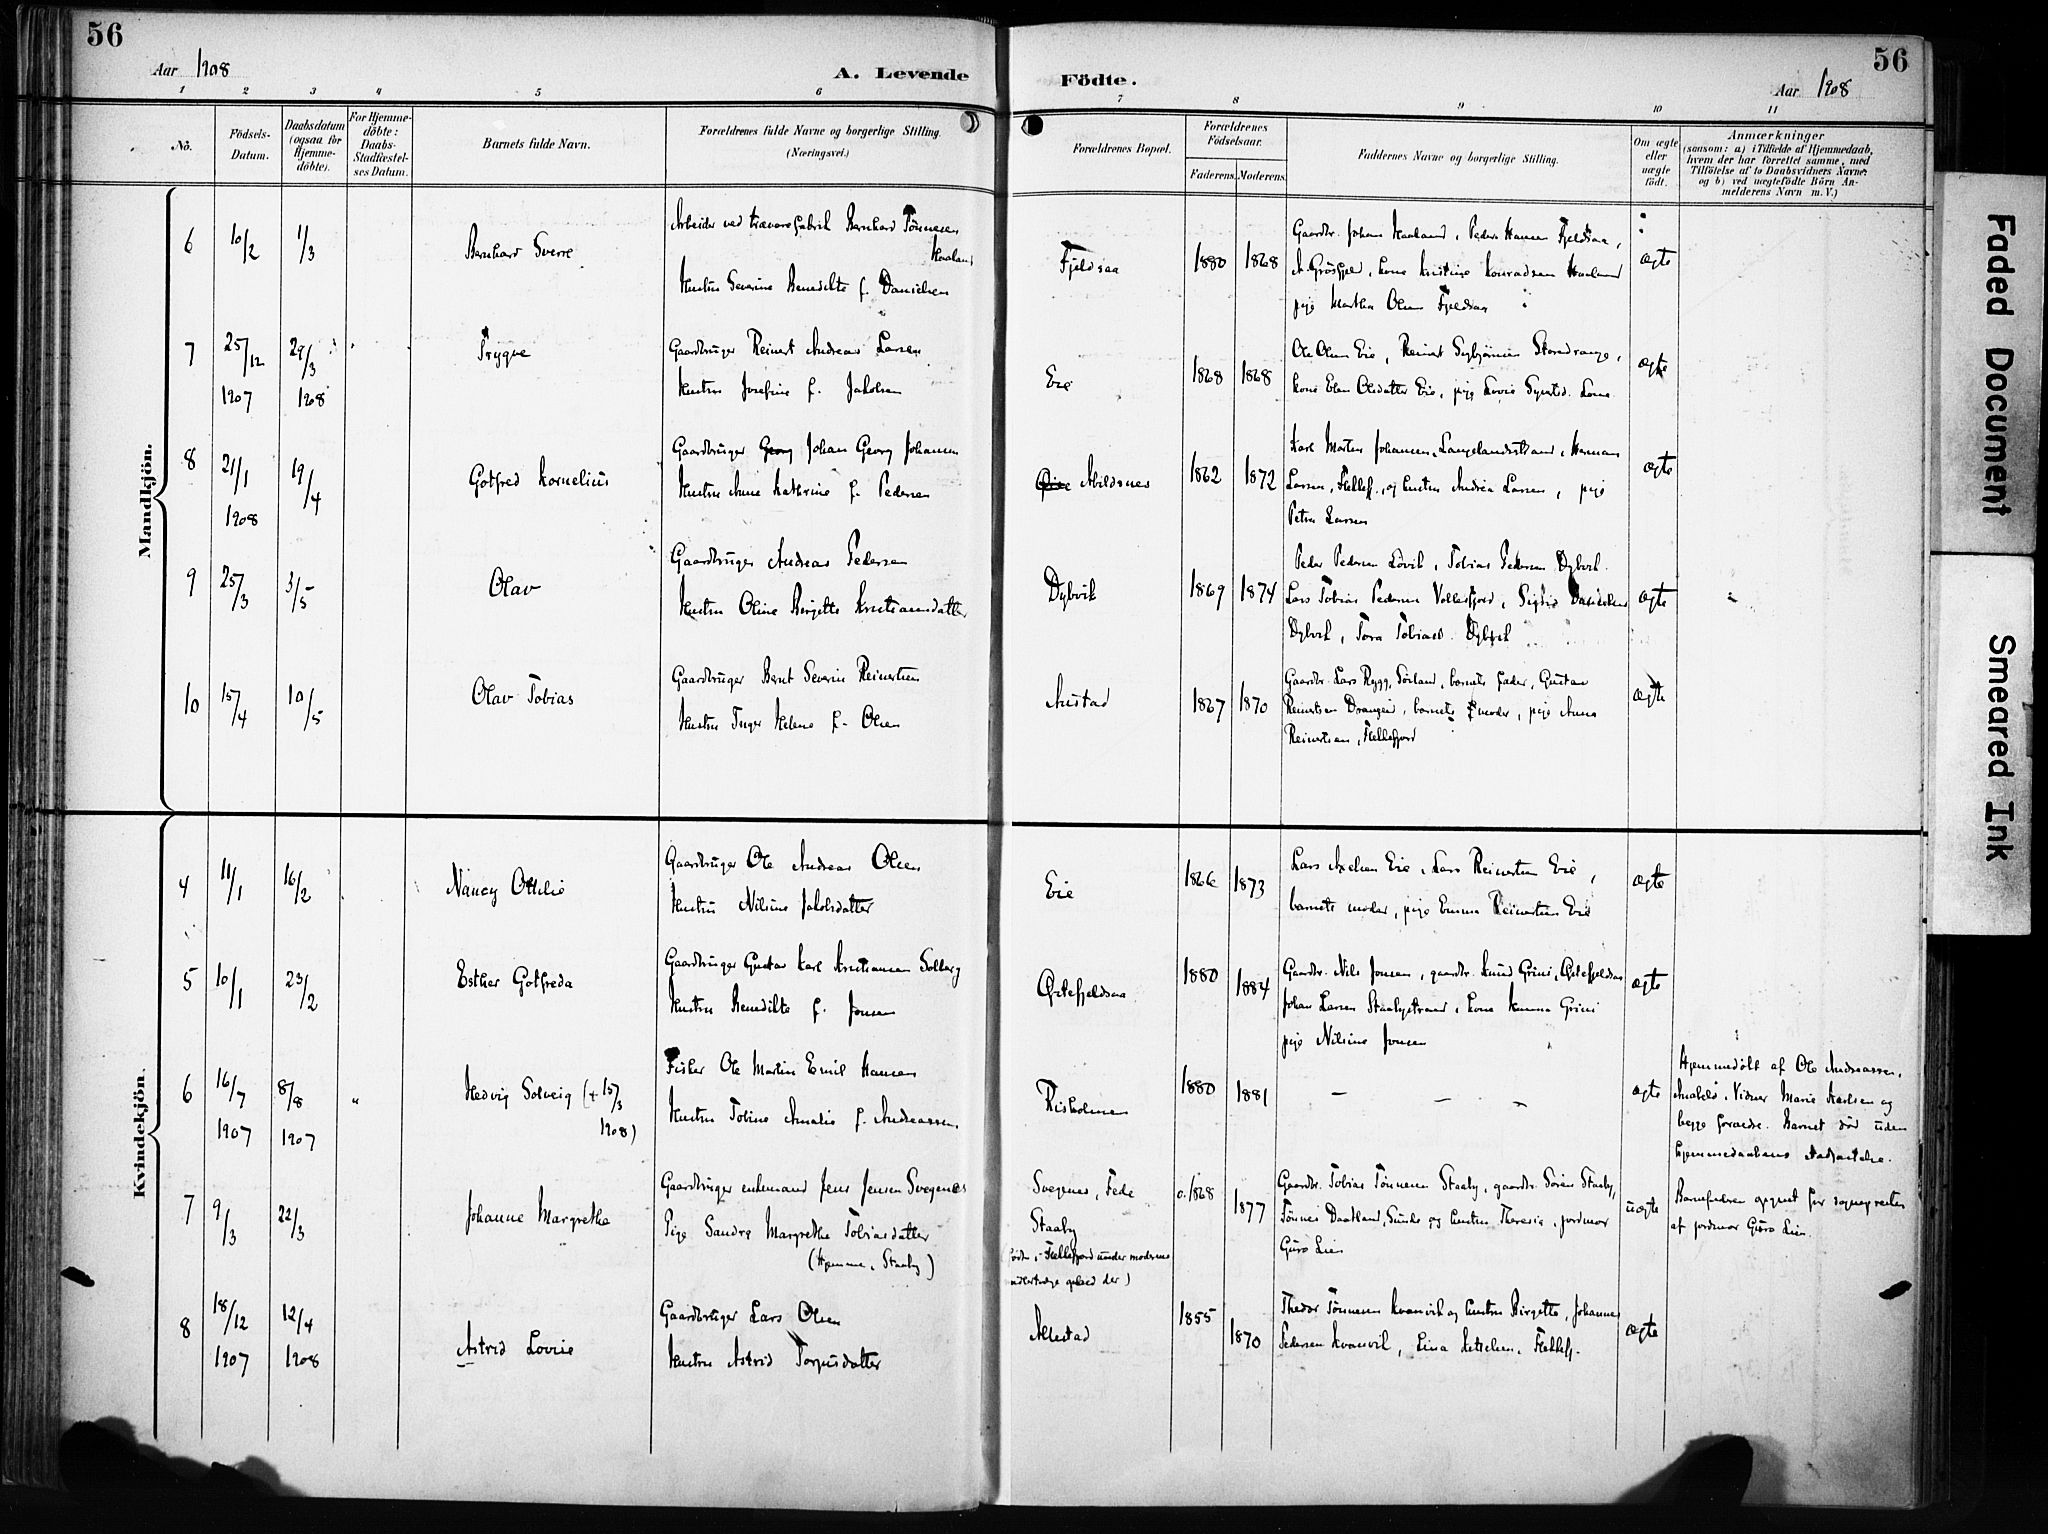 56
Aar 1908
A. Levende
1 2 3 4 5 6
No.
Födsels-Datum.
Daabsdatum (ogsaa for Hjemme-döbte).
For Hjemme-döbte: Daabs-Stadfæstel-ses Datum.
Barnets fulde Navn.
Forældrenes fulde Navne og borgerlige Stilling.
(Næringsvei.)
Mandkjön.
6 10/2 1/3 Bernhard Sverre
Arbeider ved trævarefabrik Bernhard Tönnesen
Haaland
Hustru Severine Benedikte f. Danielsen
7 25/12 1907 29/3 1908 Trygve
Gaardbruger Reinert Andreas Larsen
Hustru Josefine f. Jakobsen
8 21/1 1908 19/4 Gotfred Kornelius
Gaardbruger Georg Johan Georg Johansen
Hustru Anne Kathrine f. Pedersen
9 25/3 3/5 Olav
Gaardbruger Andreas Pedersen
Hustru Oline Birgitte Kristiansdatter
10 15/4 10/5 Olav Tobias
Gaardbruger Bernt Severin Reinertsen
Hustru Inger Helene f. Olsen
Kvindekjön.
4 11/1 16/2 Nancy Ottilie
Gaardbruger Ole Andreas Olsen
Hustru Nilsine Jakobsdatter
5 10/1 23/2 Esther Gotfreda
Gaardbruger Gustav Karl Kristiansen Solberg
Hustru Benedikte f. Jonsen
6 16/7 1907 8/8 1907 " Hedvig Solveig (+ 15/3
1908)
Fisker Ole Martin Emil Hansen
Hustru Tobine Amalie f. Andreassen
7 9/3 22/3 Johanne Margrethe
Gaardbruger enkemand Jens Jensen Svegenes
Pige Sandra Margrethe Tobiasdatter
(Hjemme, Staaby)
8 18/12 1907 12/4 1908 Astrid Lovise
Gaardbruger Lars Olsen
Hustru Astrid Torjusdatter
56
Födte.
Aar 1908
7 8 9 10 11
Forældrenes Bopæl.
Forældrenes Födselsaar.
Faderens. Moderens.
Faddernes Navne og borgerlige Stilling.
Om ægte eller uægte födt.
Anmærkninger
(saasom: a) i Tilfælde af Hjemmedaab,
hvem der har forrettet samme, med
Tilföielse af to Daabsvidners Navne:
og b) ved uægtefödte Börn An-
melderens Navn m. V.)
Fjeldsaa 1880 1868
Gaardbr. Johan Haaland, Peder Hansen Fjeldsaa,
kone Kristine Konradsen Haaland
pige Martha Olsen Fjeldsaa
ægte
Eie 1868 1868
Ole Olsen Eie, Reinert
kone Elen Olsdatter Eie, pige Lovise
ægte
Abildsnes 1862 1872
Karl Martin Johansen, Langelandsstrand, Herman
Larsen, Flekkef., og hustru Andrea Larsen, pige
Petra Larsen
ægte
Dybvik 1869 1874
Peder Pedersen Lövik, Tobias Pedersen Dybvik
Lars Tobias Pedersen Vollesfjord, Sigrid Danielsen
Dybvik, Tora Tobiasd. Dybvik
ægte
Austad 1867 1870
Gaardbr. Lars Rygg, Sörland, barnets fader, Gustav
Reinertsen Drangeid, barnets moder, pige Anna
Reinertsen, Flekkefjord
ægte
Eie 1866 1873
Lars Axelsen Eie, Lars Reinertsen Eie,
barnets moder, pige Emma Reinertsen Eie
ægte
Östefjeldsaa 1880 1884
Gaardbr. Nils Jonsen, gaardbr. Knud Grini, Östefjeldsaa
Johan Larsen Staabystrand, kone Hanna Grini
pige Nilsine Jonsen
ægte
Risholmen 1880 1881 – – –
ægte
Hjemmedöbt af Ole Andreassen,
Anabelö. Vidner Marie Karlsen og
begge forældre. Barnet död uden
hjemmedaabens stadfæstelse.
Svegenes, Fede
Staaby
(födt i Flekkefjord under moderens
midlertidige ophold der)
c. 1868 1877
Gaardbr. Tobias Tönnesen Staaby, gaardbr. Sören Staaby,
Tönnes Daatland, Sunde og hustru Theresia, jordmor
Guro Lien
uægte
Barnefaderen opgivet for sognepresten
af jordmor Guro Lien.
Allestad 1855 1870
Theodor Tönnesen Kvanvik og hustru Birgitte, Johannes
Pedersen Kvanvik, Lina Ketelsen, Flekkef.
ægte
Faded Document
Smeared Ink